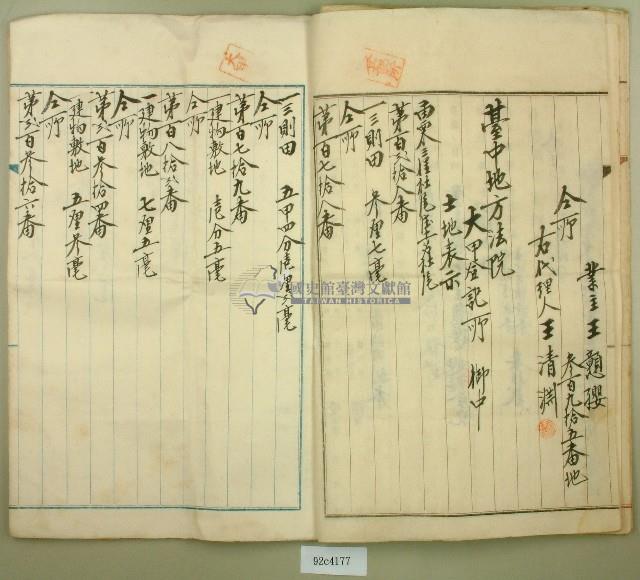 業主王
仝所 参百九拾五番地
右代理人 王清淵
臺中地方法院
大甲登記所 御中
土地表示
第百六拾八番
一三則田 参厘七毫
仝所
第百七拾八番
一三則田 五甲四分壱厘六毫
仝所
第百七拾九番
一建物敷地 壱分五毫
仝所
第百八拾六番
一建物敷地 七厘五毫
仝所
第弍百参拾四番
一建物敷地 五厘参毫
仝所
第弍百参拾六番
國史館臺灣文獻館
TAIWAN HISTORICA
92c4177